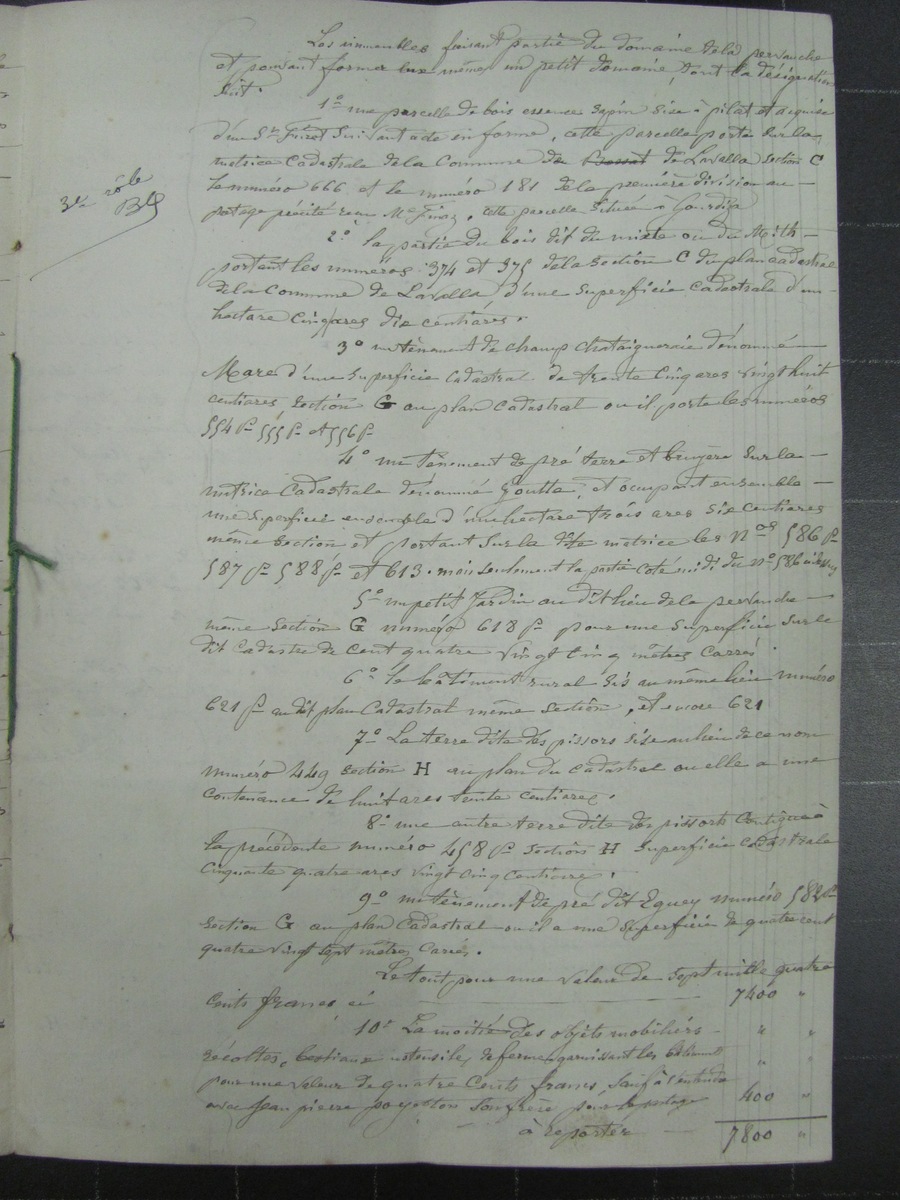 Les immeubles faisant partie du domaine de la pervanche
et pouvant former eux même un petit domaine, dont la désignation
suit.
1o une parcelle de bois essence sapin sise à pilat et acquise
d'un Sr suivant acte en forme, cette parcelle porte sur la
matrice cadastrale de la Commune de de Lavalla section C
le numéro 666 et le numéro 181 de la première division au
partage précité reçu Me Finaz, cette parcelle située a
3e rôle
2o la partie du bois dit du mixte ou du
portant les numéros 374 et 375 de la section C du plan cadastral
de la Commune de Lavalla d'une superficie cadastrale d'un
hectare cinq ares dix centiares.
3o un tènement de champ chataigneraie dénommé
Mare d'une superficie cadastral de trente cinq ares vingt huit
centiares section G au plan cadastral ou il porte les numéros
554 p. 555 p. et 556 p.
4o un tènement de pré terre et bruyère sur la
matrice cadastrale dénommé Goutta, et occupant ensemble
une superficie ensemble d'un hectare trois ares six centiares
même section et portant sur la dite matrice les Nos 586 p.
587 p. 588 p. et 613. mais seulement la partie coté midi du no 586
5o un petit Jardin au dit lieu de la pervanche
même section G numéro 618 p. pour une superficie sur le
dit cadastre de cent quatre vingt cinq mètres carrés
6o le bâtiment rural sis au même lieu numéro
621 p. au dit plan cadastral même section, et encore 621
7o La terre dite des pissors sise au lieu de ce nom
numéro 449 section H au plan du cadastral ou elle a une
contenance de huit ares trente centiares.
8o une autre terre dite des pissorts contigue à
la précédente numéro 458 p. section H superficie cadastrale
cinquante quatre ares vingt cinq centiares.
9o un tènement de pré dit Eguey numéro 582 p.
section G au plan cadastral ou il a une superficie de quatre cent
quatre vingt sept mètres carrés.
Le tout pour une valeur de sept mille quatre
cents francs ci 7400 "
10o La moitié des objets mobiliers " "
récoltes, bestiaux ustensiles de ferme garnissant les bâtiments " "
pour une valeur de quatre cents francs, sauf à s'entendre
avec Jean pierre son frère pour le partage 400 "
à reporter 7800 "